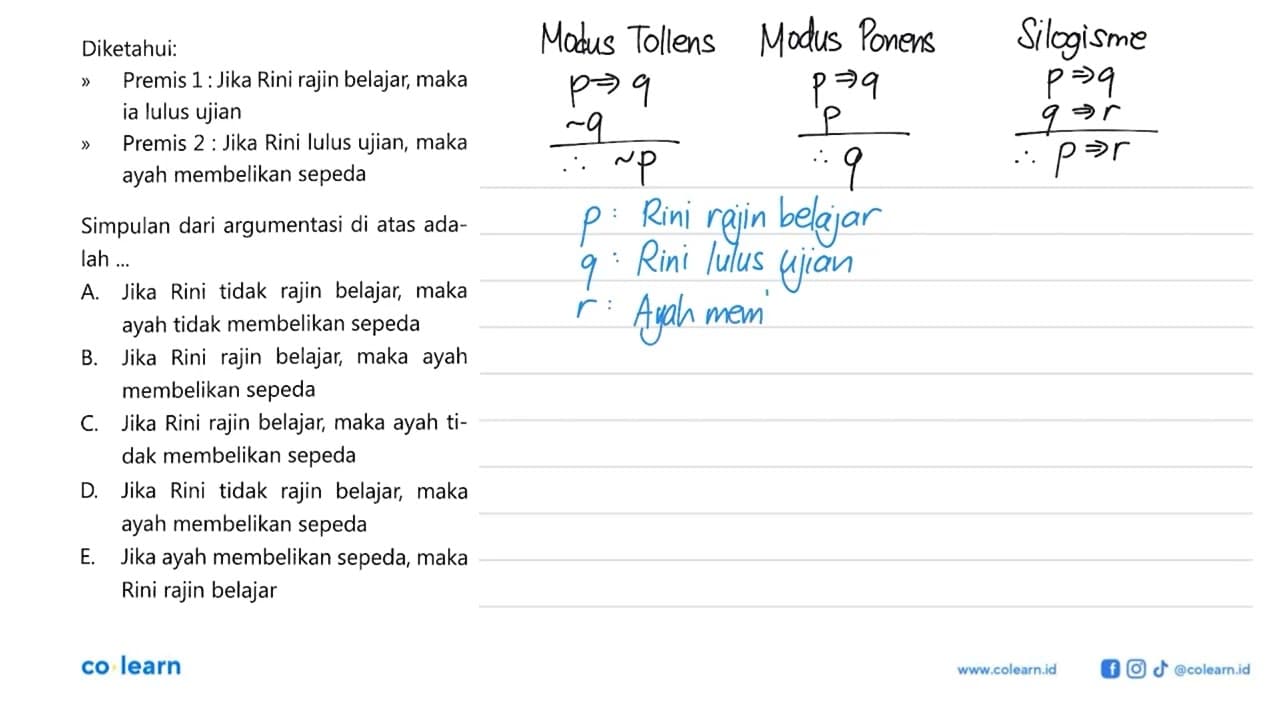 Diketahui:
» Premis 1 : Jika Rini rajin belajar, maka
ia lulus ujian
» Premis 2 : Jika Rini lulus ujian, maka
ayah membelikan sepeda
Simpulan dari argumentasi di atas ada-
lah ...
A. Jika Rini tidak rajin belajar, maka
ayah tidak membelikan sepeda
B. Jika Rini rajin belajar, maka ayah
membelikan sepeda
C. Jika Rini rajin belajar, maka ayah ti-
dak membelikan sepeda
D. Jika Rini tidak rajin belajar, maka
ayah membelikan sepeda
E. Jika ayah membelikan sepeda, maka
Rini rajin belajar
Modus Tollens
p ⇒ q
~q
∴ ~p
Modus Ponens
p ⇒ q
p
∴ q
Silogisme
p ⇒ q
q ⇒ r
∴ p ⇒ r
p : Rini rajin belajar
q : Rini lulus ujian
r : Ayah mem
co learn
www.colearn.id
@colearn.id